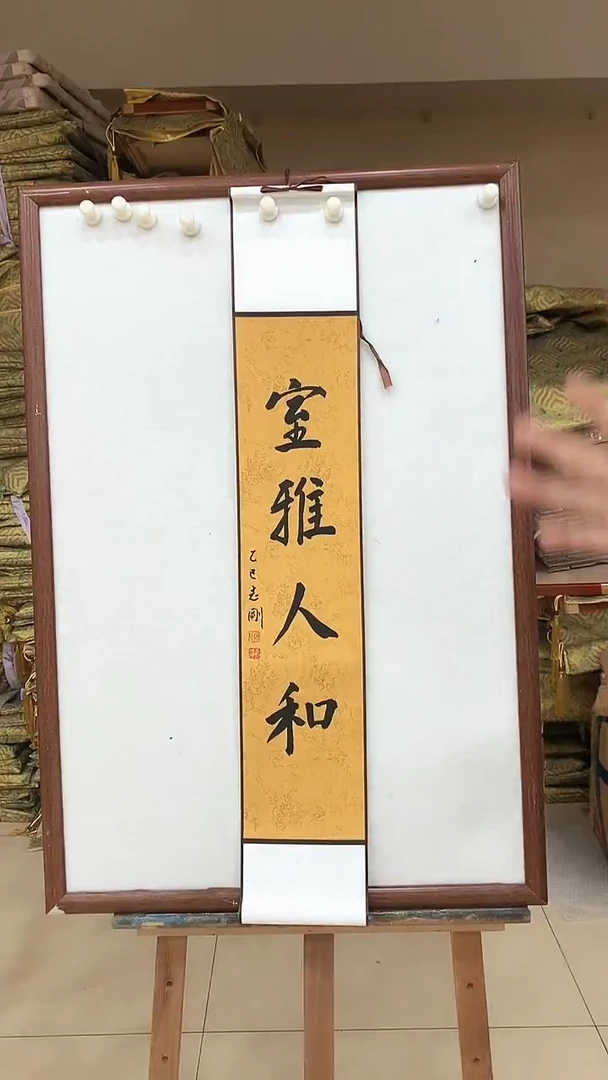 室雅人和
乙巳志刚